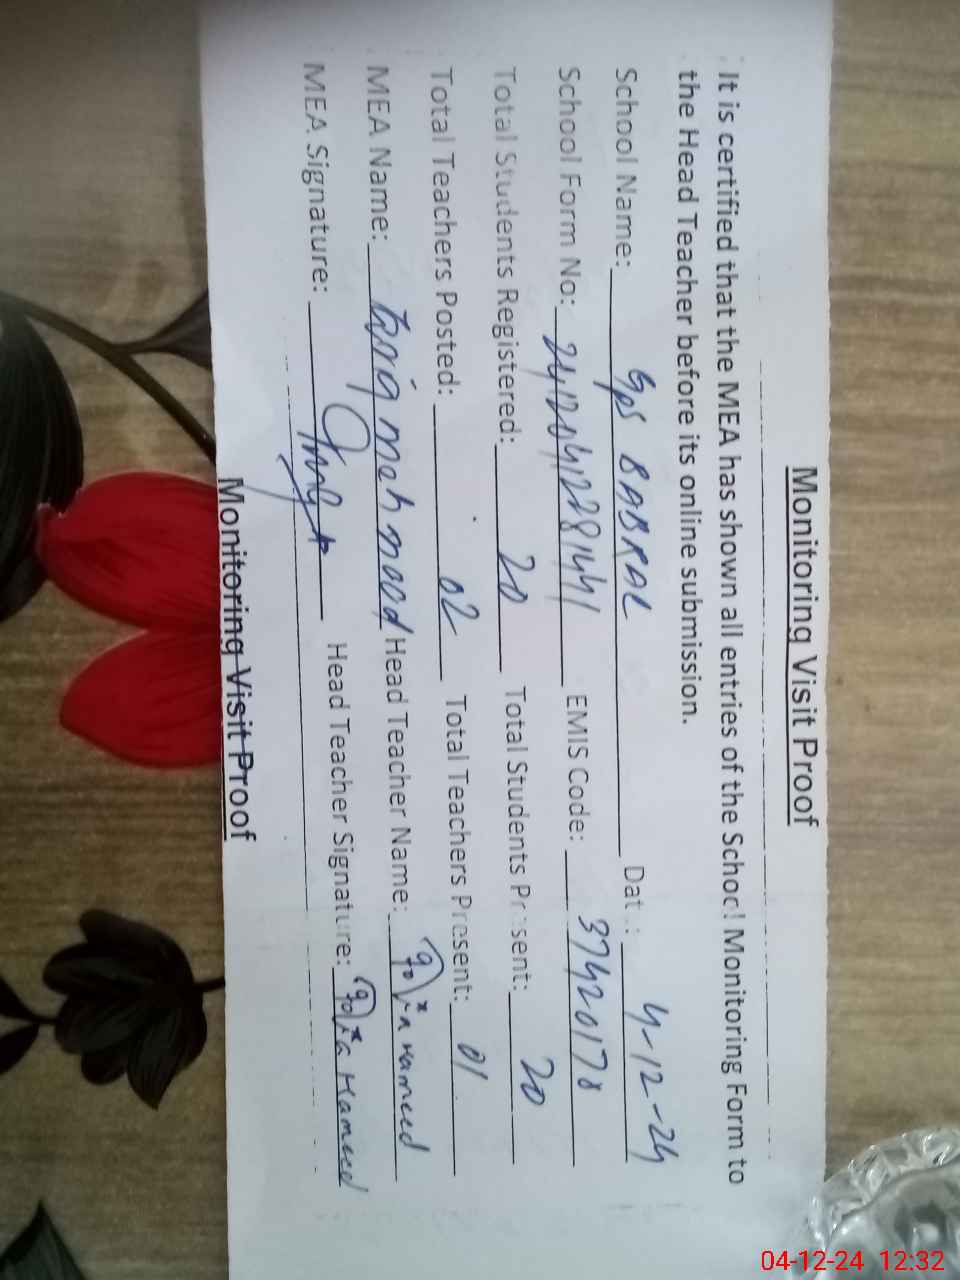 Monitoring Visit Proof
It is certified that the MEA has shown all entries of the School Monitoring Form to
the Head Teacher before its online submission.
School Name: GPS BABRAL Date: 4-12-24
School Form No: EMIS Code: 37420178
Total Students Registered: 20 Total Students Present: 20
Total Teachers Posted: 02 Total Teachers Present: 01
MEA Name: Tariq mehmood Head Teacher Name: Hameed
MEA Signature: Head Teacher Signature: Hameed
Monitoring Visit Proof
04-12-24 12:32